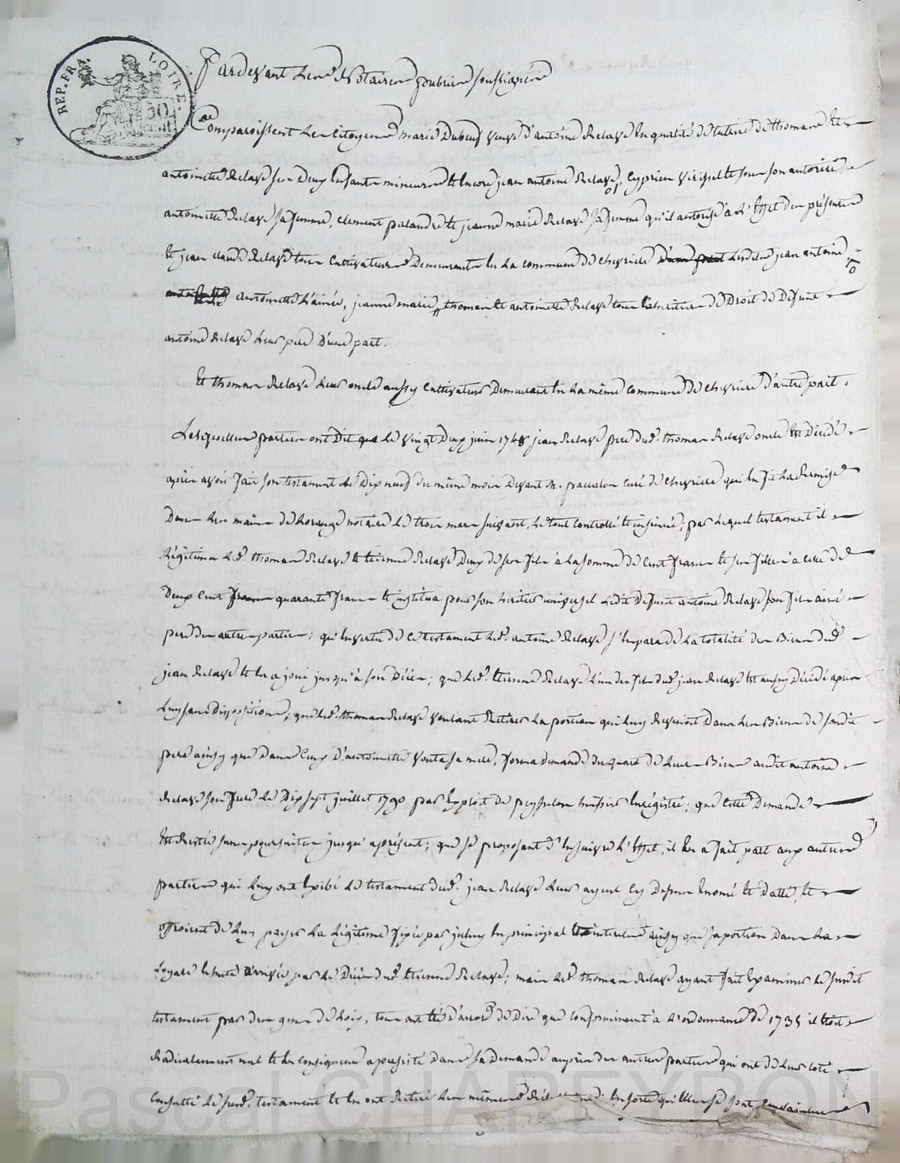 REP. FRA. LOIRE
50 CENT.
Pardevant Les nres Notaires publics soussignés
Comparoissent Les Citoyens marie Dubeuf veuve d'antoine Relave En qualité de tutrice de thomas et
antoinette Relave ses Deux Enfants mineurs et Encore jean antoine Relave, Cyprien et sous son autorité
antoinette Relave sa femme, Clement palandre et jeanne marie Relave sa femme qu'il autorise à L'Effet des présentes
Et jean claude Relave tous Cultivateurs Demeurants En La commune de chevrière Lesdits jean antoine
antoinette L'ainée, jeanne marie, thomas et antoinette Relave tous héritiers de Droit de Défunt
antoine Relave Leur pere D'une part.
Et thomas Relave Leur oncle aussy Cultivateur Demeurant En La même commune de chevrière D'autre part.
Lesquelles parties ont Dit que Le vingt Deux juin 1748 jean Relave pere dud. thomas Relave oncle Est Décédé
après avoir fait son testament Le Dix neuf du même mois Devant M. passalon curé de chevrière qui En fit La Remise
Dans Les mains de notaire Le trois mars suivant, Le tout controllé et insinué; par Lequel testament il
Légitima Led. thomas Relave et Etienne Relave Deux de ses fils à La somme de Cent francs et ses filles à celle de
Deux Cent quarante francs et institua pour son héritier universel Ledit Défunt antoine Relave son fils ainé
pere des autres parties; qu'En vertu de ce testament Led. antoine Relave s'Empara de La totalité des Biens dud.
jean Relave et En a joui jusqu'à son Décès; que Led. Etienne Relave L'un des fils dud. jean Relave Est aussy Décédé après
Luy sans Disposition; que Led. thomas Relave voulant Retirer La portion qui Luy Revenoit Dans Les Biens de sondit
pere ainsy que Dans Ceux D'antoinette sa mere, forma demande du quart de Leurs Biens audit antoine
Relave son frere Le Dix sept juillet 1790 par Exploit de peysselon huissier Enrégistré; que Cette Demande
Est Restée sans poursuites jusqu'aprésent; que se proposant d'En suivre L'Effet, il En a fait part aux autres
parties qui Luy ont Exibé Le testament dud. jean Relave Leur ayeul Cy Dessus Enoncé et Datté, et
offroient de Luy payer La Légitime fixée par iceluy En principal et intérêts ainsy que sa portion Dans La
Légale Ensuite arrivée par Le Décès dud. Etienne Relave; mais Led. thomas Relave ayant fait Examiner Le susdit
testament par des gens de Loix, tous ont été d'accord de Dire que conformément à L'ordonnance de 1735 il Etoit
Radicalement nul et En conséquence a persisté Dans sa Demande auprès des autres parties qui ont de Leur coté
Consulté Le susd. testament et En ont Retiré Les mêmes En sorte qu'Elles se sont Convaincues
Pascal CHAREYRON